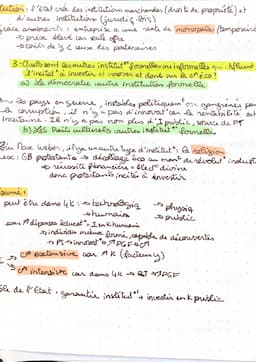 : l'État crée des institutions marchandes (droits de propriété) et
d'autres institutions (juridiq
: entreprise a une rente de monopole (temporaire
→ prix élevé car seule offre
→ coûts de
3- Quelles sont les autres institut° formelles ou informelles qui influent
l'incitat° à investir et innover et donc sur la c° éco?
a) La démocratie: autre institution formelle
les pays en guerre, instables politiquement ou gangrenés par
la corruption, il n'y a pas d'innovat° car la rentabilité est
incertaine. Il n'y a pas non plus d'I public, source de PT
b) Les traits culturels: autre institut° formelle
Max Weber, il y a un autre type d'institut°: la religion
ex: GB protestante → décollage éco au mom° de révolut° indust
→ réussite financière = élect° divine
donc protestants incités à investir
peut être dans 4K: → technologiq → physiq
→ humain → public
car ↗ dépenses éducat° = I en k humain
→ individu mieux formé, capable de découvertes
→ PT → innovat° → ↗ PGF → C°
C° extensive car ↗ K (facteurs)
C° intensive car dans 4K → PT → ↗ PGF
rôle de l'État: garantir institut° + investir en k public